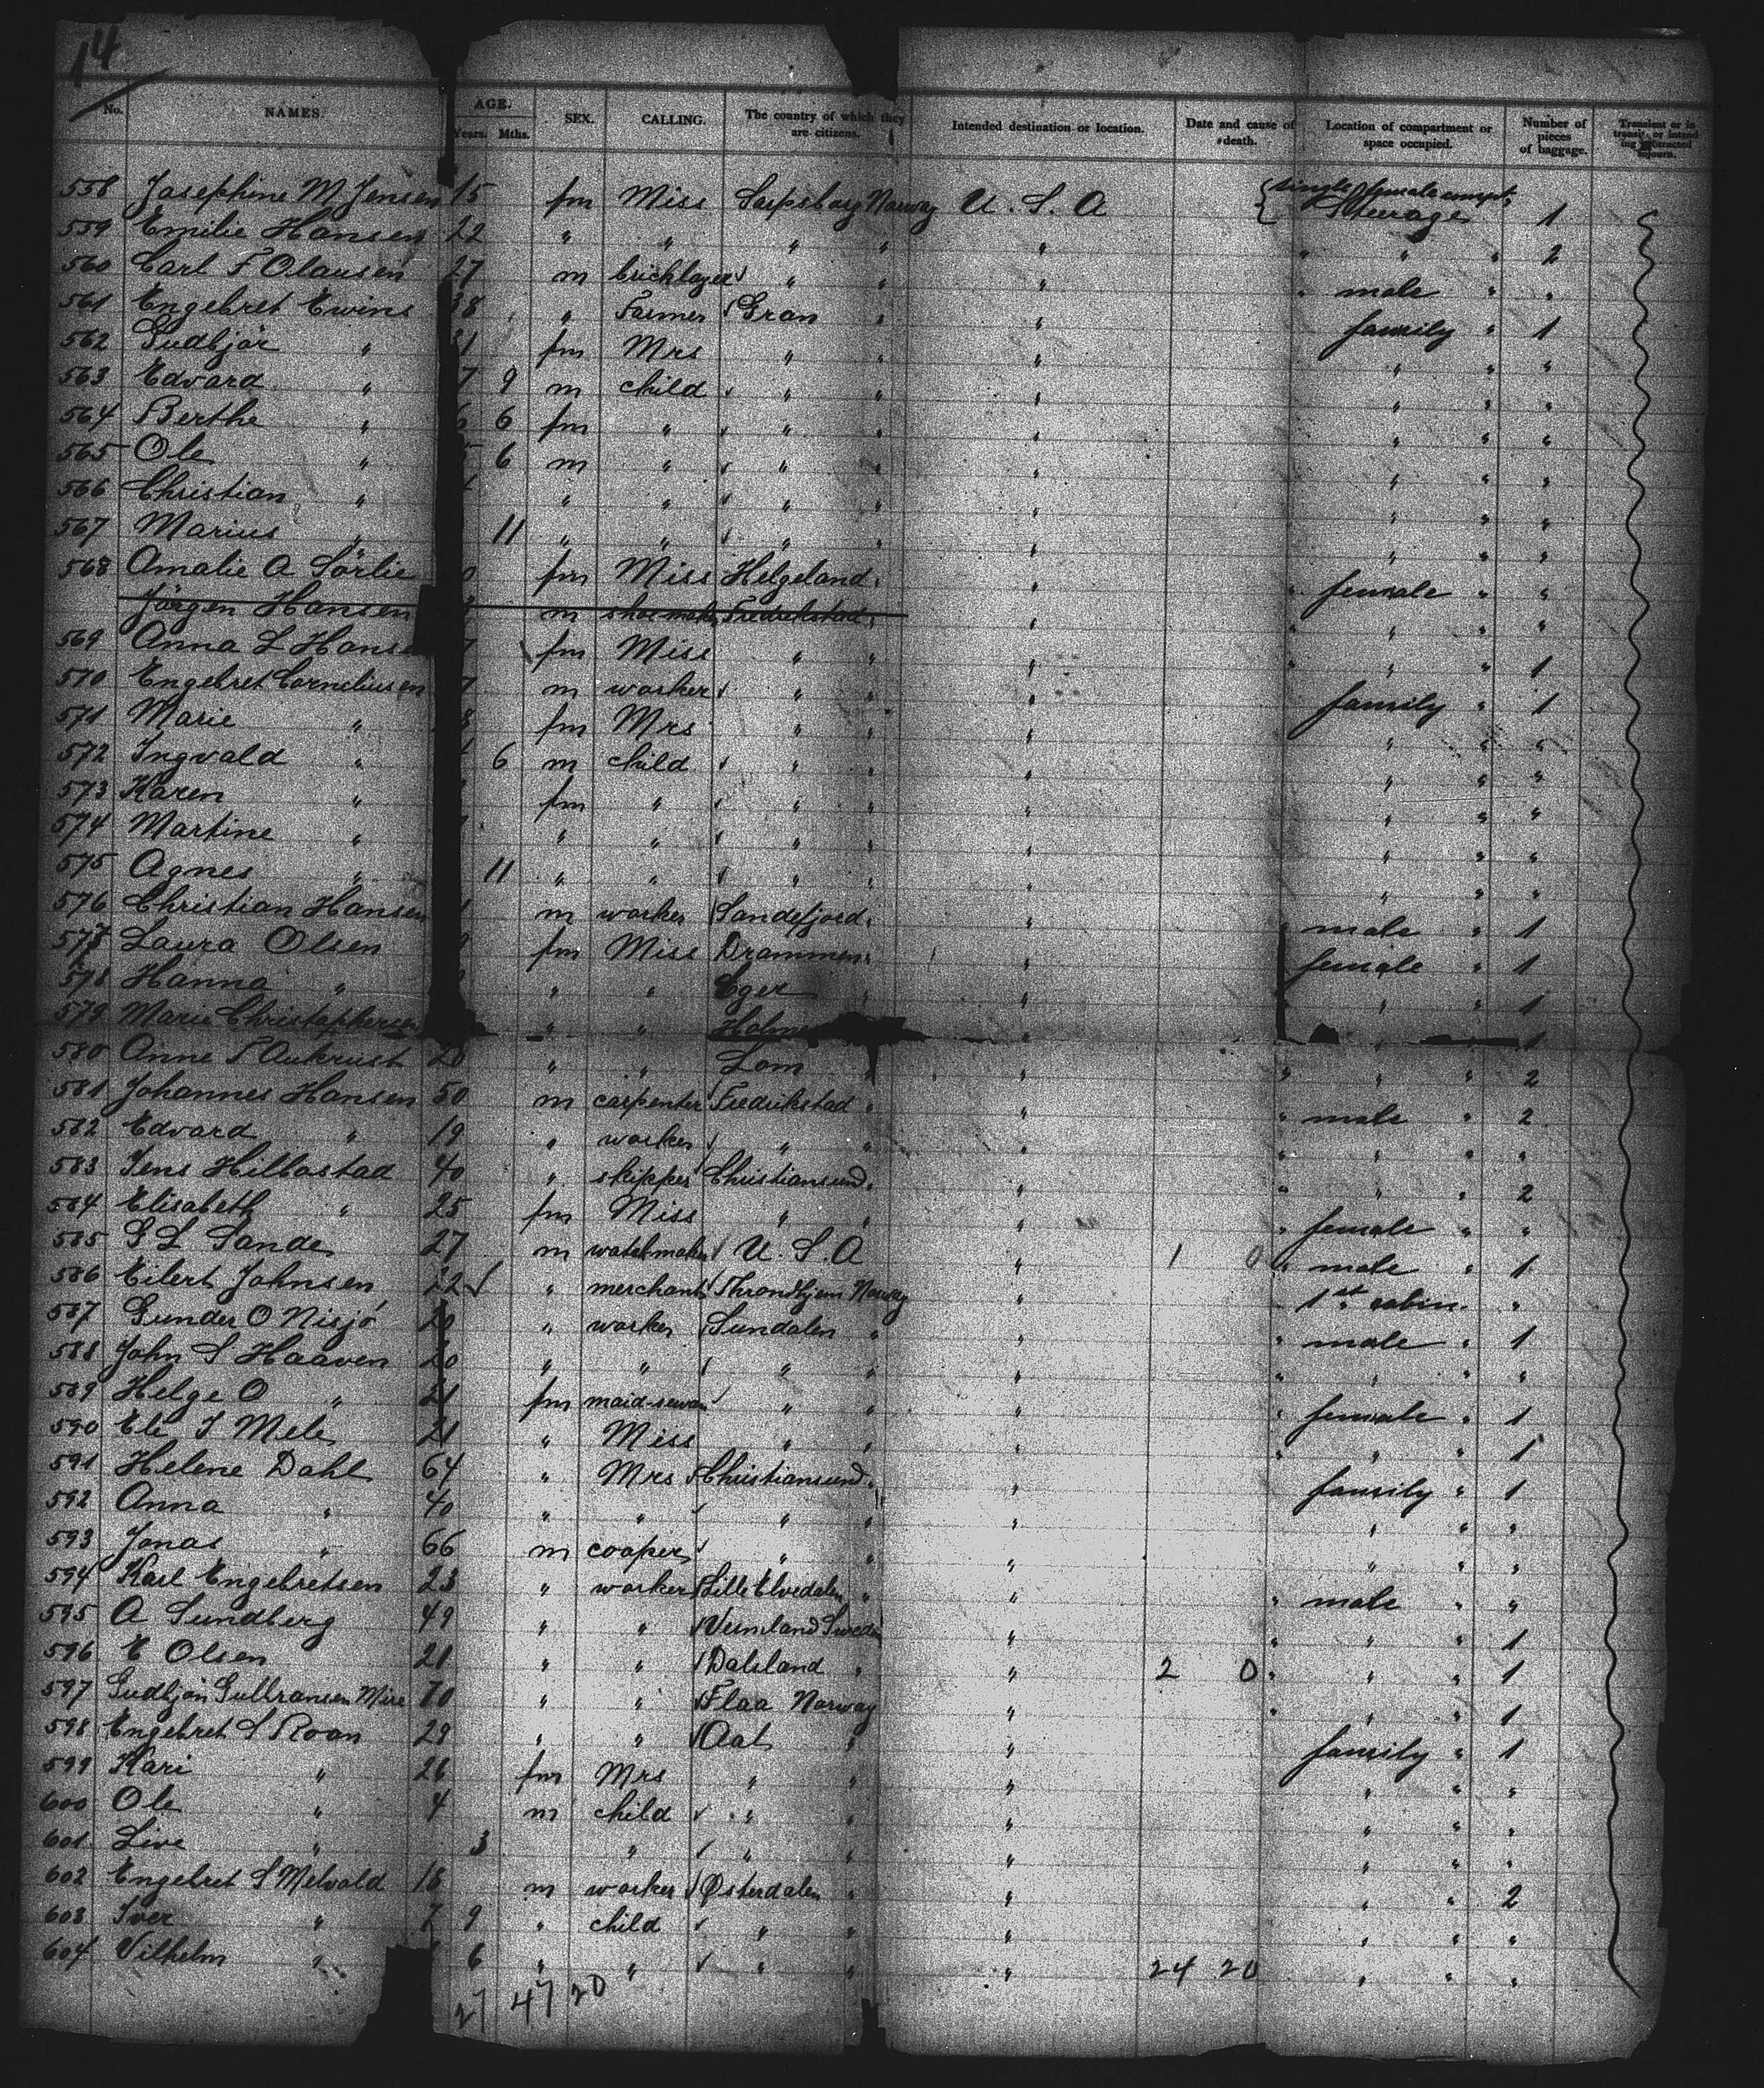 14
No. NAMES. AGE. Years. Mths. SEX. CALLING. The country of which they are citizens. Intended destination or location. Date and cause of death. Location of compartment or space occupied. Number of pieces of baggage. Transient or in transit, or intending protracted sojourn.
558 Josephine M Jensen 15 fm Miss Sarpsborg Norway U.S.A {single female compt. Steerage 1
559 Emilie Hansen 22 " " " " " " " " 2
560 Carl F Olausen 27 m bricklayer " " " " male " "
561 Engebret Ewins 38 " Farmer Gran " " family " 1
562 Gudbjör " 31 fm Mrs " " " " " "
563 Edvard " 7 9 m child " " " " " "
564 Berthe " 6 6 fm " " " " " " "
565 Ole " 6 m " " " " " " "
566 Christian " " " " " " " " "
567 Marius " 11 " " " " " " " "
568 Amalie A Sörlie fm Miss Helgeland " " " female " "
Jörgen Hansen m shoe-maker Fredrikstad " " " " " "
569 Anna L Hanse 7 fm Miss " " " " " " 1
570 Engebret Corneliusen 7 m worker " " " family " 1
571 Marie " 8 fm Mrs " " " " " "
572 Ingvald " 6 m child " " " " " "
573 Karen " fm " " " " " " "
574 Martine " " " " " " " " "
575 Agnes " 11 " " " " " " " "
576 Christian Hansen m worker Sandefjord " " male " 1
577 Laura Olsen fm Miss Drammen " " female " 1
578 Hanna " " " Eger " " " 1
579 Marie Christophersen " " Holme " " 1
580 Anne T Aukrust 20 " " Lom " " " " " 2
581 Johannes Hansen 50 m carpenter Fredrikstad " " " male " 2
582 Edvard " 19 " worker " " " " " " "
583 Jens Hillastad 40 " skipper Christiansund " " " " " 2
584 Elisabeth " 25 fm Miss " " " " female " "
585 G L Sande 27 m watch-maker U.S.A " 1 0 " male " 1
586 Eilert Johnsen 22 " merchant Throndhjem Norway " 1st cabin "
587 Gunder O Nisjö 20 " worker Sundalen " " " male " 1
588 John S Haaven 20 " " " " " " " " "
589 Helge O " 21 fm maid-servan " " " " female " 1
590 Eli I Mele 21 " Miss " " " " " " 1
591 Helene Dahl 64 " Mrs Christiansund " " family " 1
592 Anna " 40 " " " " " " " "
593 Jonas " 66 m cooper " " " " " "
594 Karl Engebretsen 23 " worker Lille Elvedalen " " " male " "
595 A Sundberg 49 " " Vermland Sweden " " " " 1
596 E Olsen 21 " " Dalsland " " 2 0 " " " 1
597 Gudbjön Gulbransen Mire 70 " " Flaa Norway " " " " 1
598 Engebret S Roan 29 " " Aal " " family " 1
599 Kari " 26 fm Mrs " " " " " "
600 Ole " 4 m child " " " " "
601 Live " 3 " " " " " " "
602 Engebret S Melvold 18 m worker Østerdalen " " " " 2
603 Iver " 7 9 " child " " " " " "
604 Vilhelm " 6 " " " " " 24 20 " " "
27 47 20